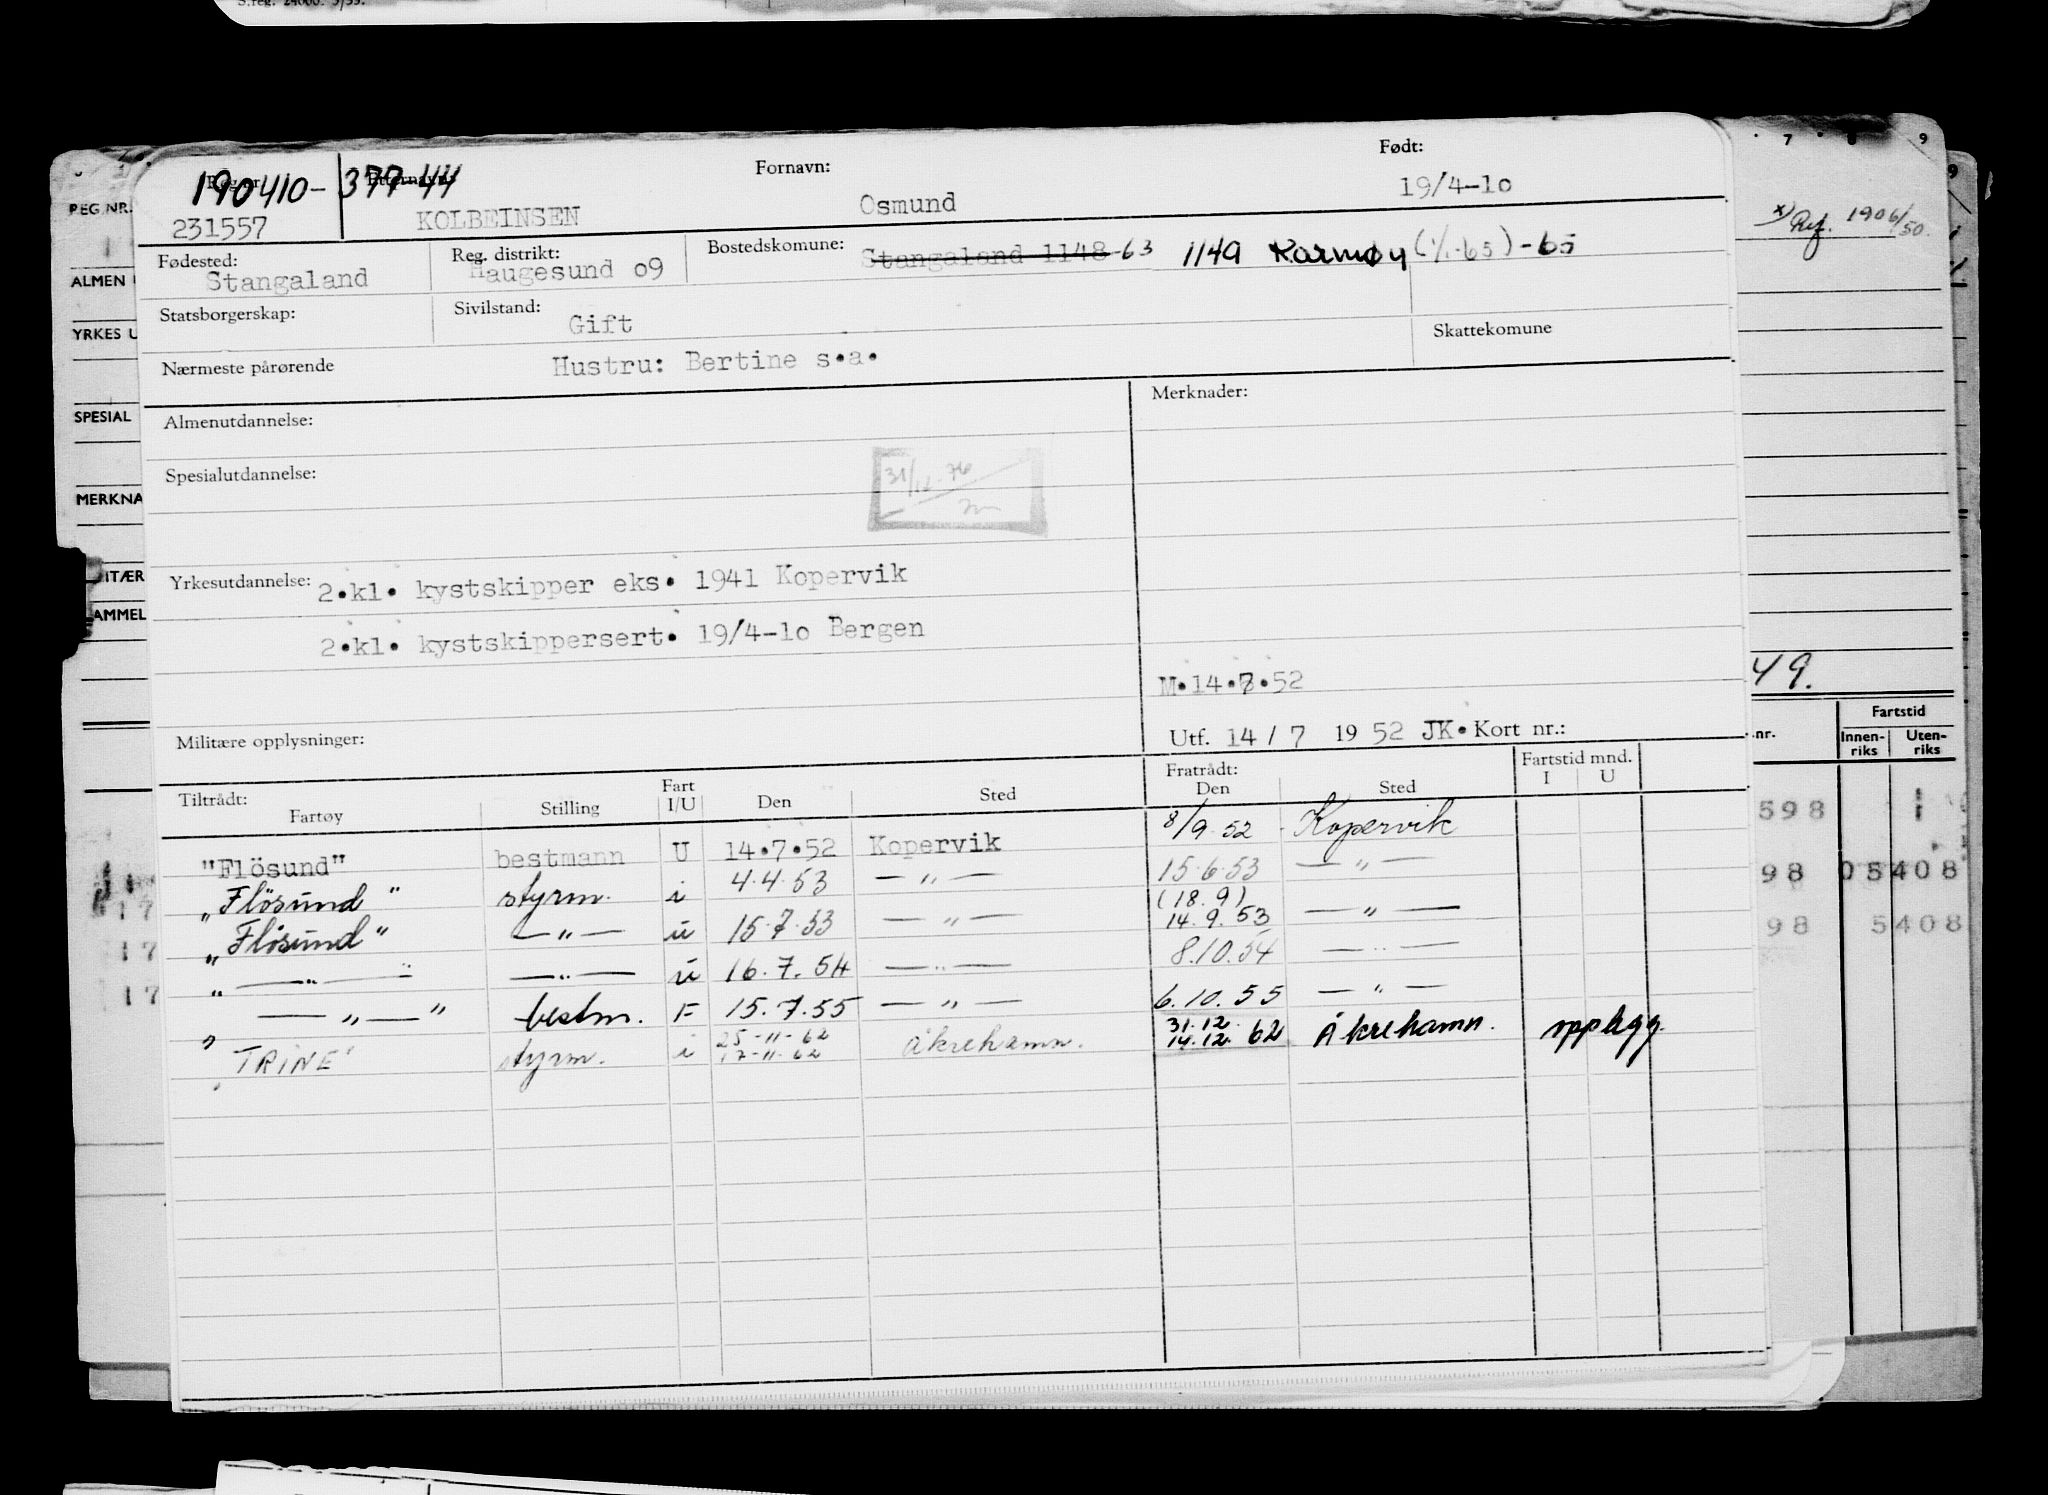 S.reg. 24000. 5/55.
7 8 9
9
REG.NR.
ALMEN
YRKES U
SPESIAL
MERKNA
ITÆR
AMMEL
x) Ref. 1906/50.
49.
.nr. Fartstid
Innen-riks Uten-riks
598 1
98 05408
98 5408
17
17
17
190410-37744
Fornavn: Født:
231557 KOLBEINSEN Osmund 19/4-1o
Fødested: Stangaland Reg. distrikt: Haugesund o9 Bostedskomune: Stangaland 1148-63 1149 Karmøy (1/1-65) -65
Statsborgerskap: Sivilstand: Gift Skattekomune
Nærmeste pårørende Hustru: Bertine s.a.
Almenutdannelse: Merknader:
Spesialutdannelse:
Yrkesutdannelse: 2.kl. kystskipper eks. 1941 Kopervik
2.kl. kystskippersert. 19/4-1o Bergen
M.14.7.52
Militære opplysninger: Utf. 14 / 7 19 52 JK. Kort nr.:
Tiltrådt: Fratrådt: Fartstid mnd.
Fartøy Stilling Fart I/U Den Sted Den Sted I U
"Flösund" bestmann U 14.7.52 Kopervik 8/9.52 - Kopervik
„Flösund" styrm. i 4.4.53 — „ — 15.6.53 — „ —
„Flösund" — „ — u 15.7.53 — „ — (18.9) 14.9.53 — „ —
„ — „ — — „ — u 16.7.54 — „ — 8.10.54 — „ —
„ — „ — " bestm. F 15.7.55 — „ — 6.10.55 — „ —
„TRINE" styrm. i 25-11-62 17-11-62 Åkrehamn. 31.12. 14.12. 62 Åkrehamn. opplegg